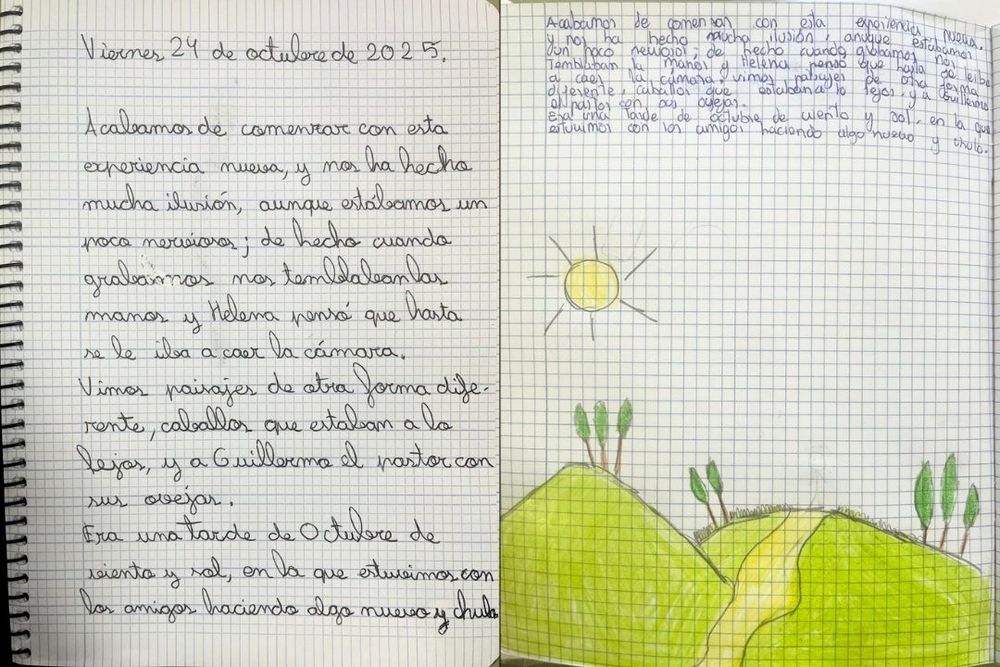 Viernes 24 de octubre de 2025.
Acabamos de comenzar con esta
experiencia nueva, y nos ha hecho
mucha ilusión, aunque estábamos un
poco nerviosos; de hecho cuando
grabamos nos temblaban las
manos y Helena pensó que hasta
se le iba a caer la cámara.
Vimos paisajes de otra forma dife-
rente, caballos que estaban a lo
lejos, y a Guillermo el pastor con
sus ovejas.
Era una tarde de Octubre de
viento y sol, en la que estuvimos con
los amigos haciendo algo nuevo y chulo
Acabamos de comenzar con esta experiencia nueva,
y nos ha hecho mucha ilusión, aunque estabamos
un poco nerviosos; de hecho cuando grabamos nos
temblaban la manos y Helena pensó que hasta se le iba
a caer la cámara. vimos paisajes de otra forma
diferente, caballos que estaban a lo lejos, y a Guillermo
el pastor con sus ovejas.
Era una tarde de octubre de viento y sol, en la que
estuvimos con los amigos haciendo algo nuevo y chulo.